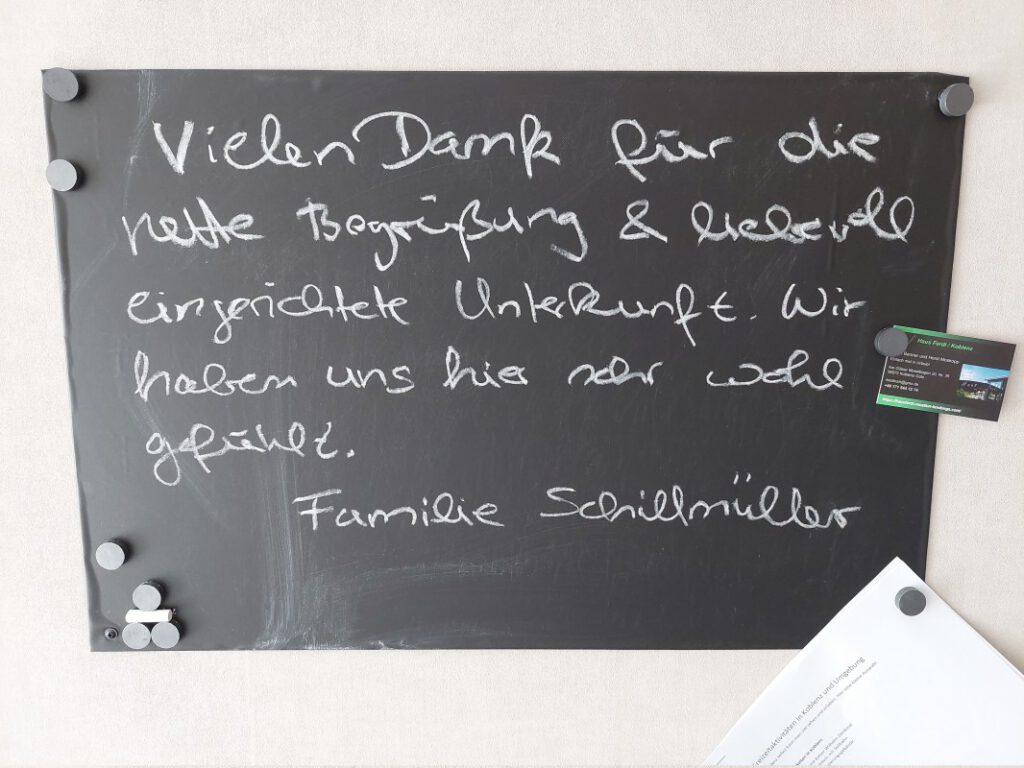 Vielen Dank für die
nette Begrüßung & liebevoll
eingerichtete Unterkunft. Wir
haben uns hier sehr wohl
gefühlt.
Familie Schillmüller
Haus Ferdi / Koblenz
Freizeitaktivitäten in Koblenz und Umgebung